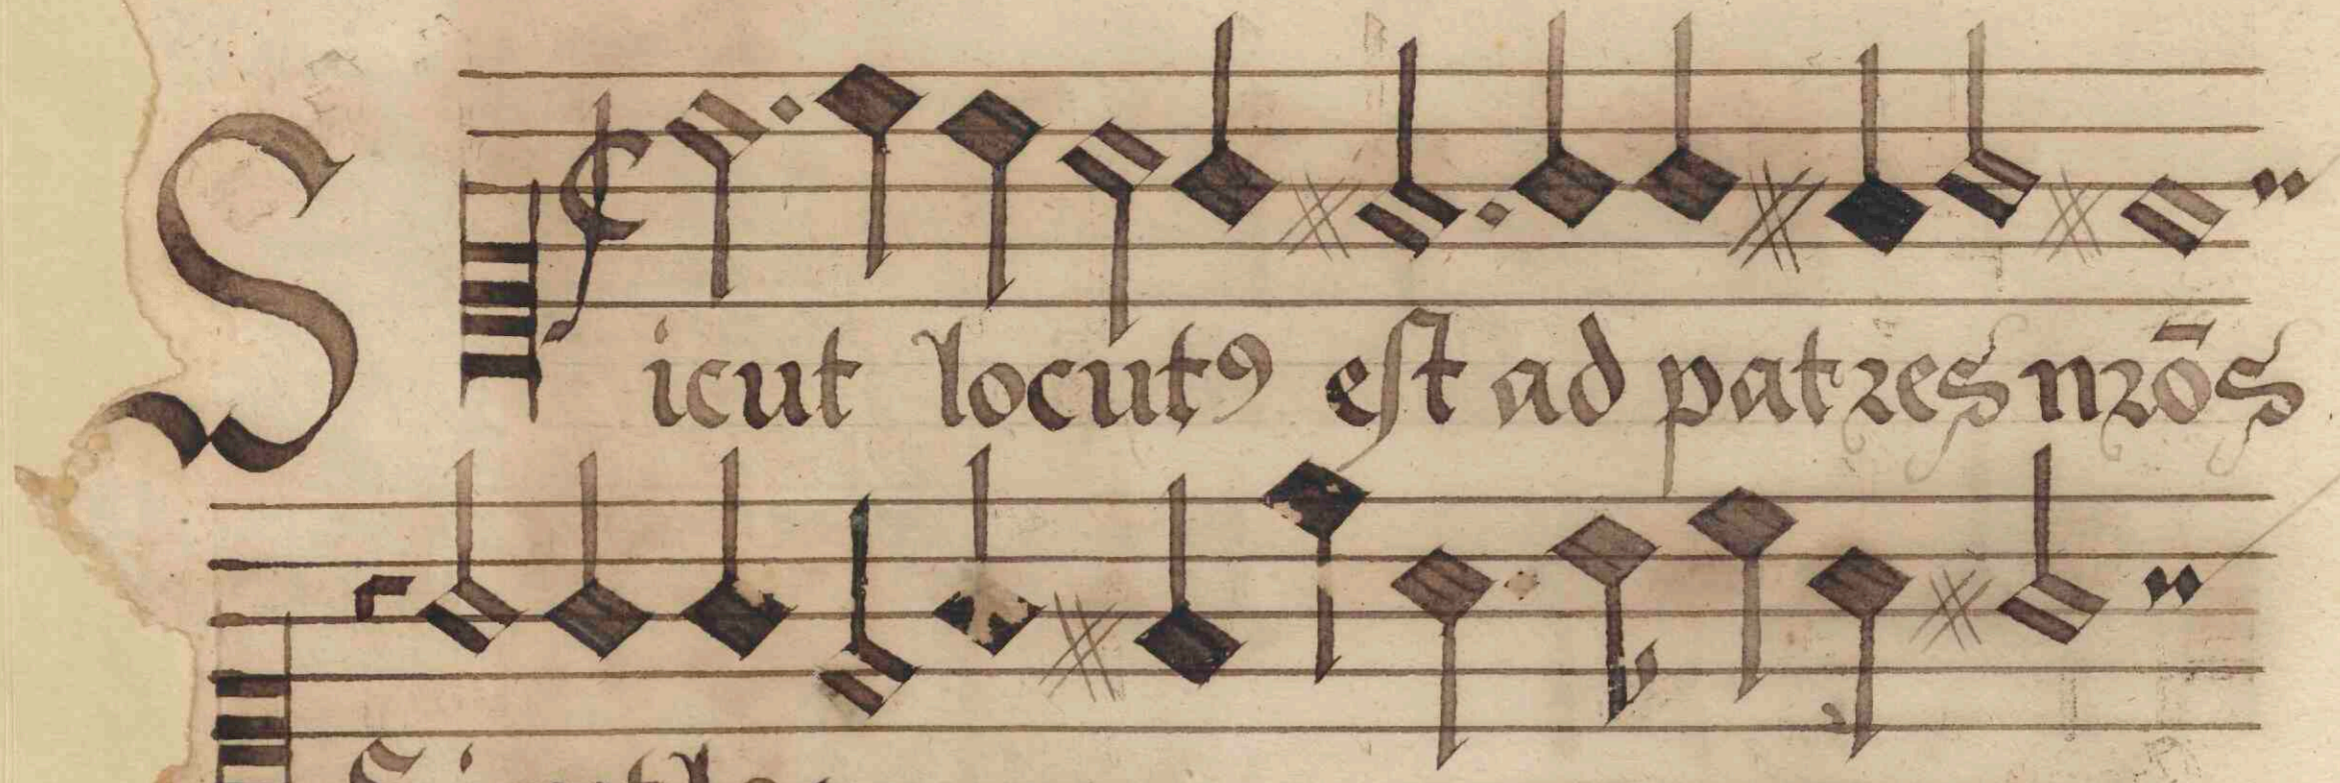 Sicut locutꝰ est ad patres nr̄os